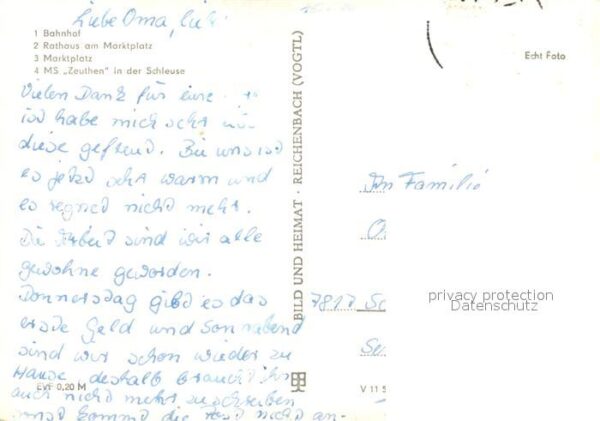 Liebe Oma,
1 Bahnhof
2 Rathaus am Marktplatz
3 Marktplatz
4 MS „Zeuthen" in der Schleuse
Vielen Dank für eure
ich habe mich sehr
diese gefreud. Bei uns ist
es jetzt sehr warm und
es regned nicht mehr.
Die Arbeid sind wir alle
gewohne geworden.
Donnersdag gibd es das
erste Geld und Sonnabend
sind wir schon wieder zu
Hause deshalb brauchd ihr
auch nicht mehr zu schreiben
sonsd kommd die Posd nicht an-
EVF 0,20 M
BILD UND HEIMAT · REICHENBACH (VOGTL)
Echt Foto
An Familie
7817 Sc
privacy protection
Datenschutz
V 11 5